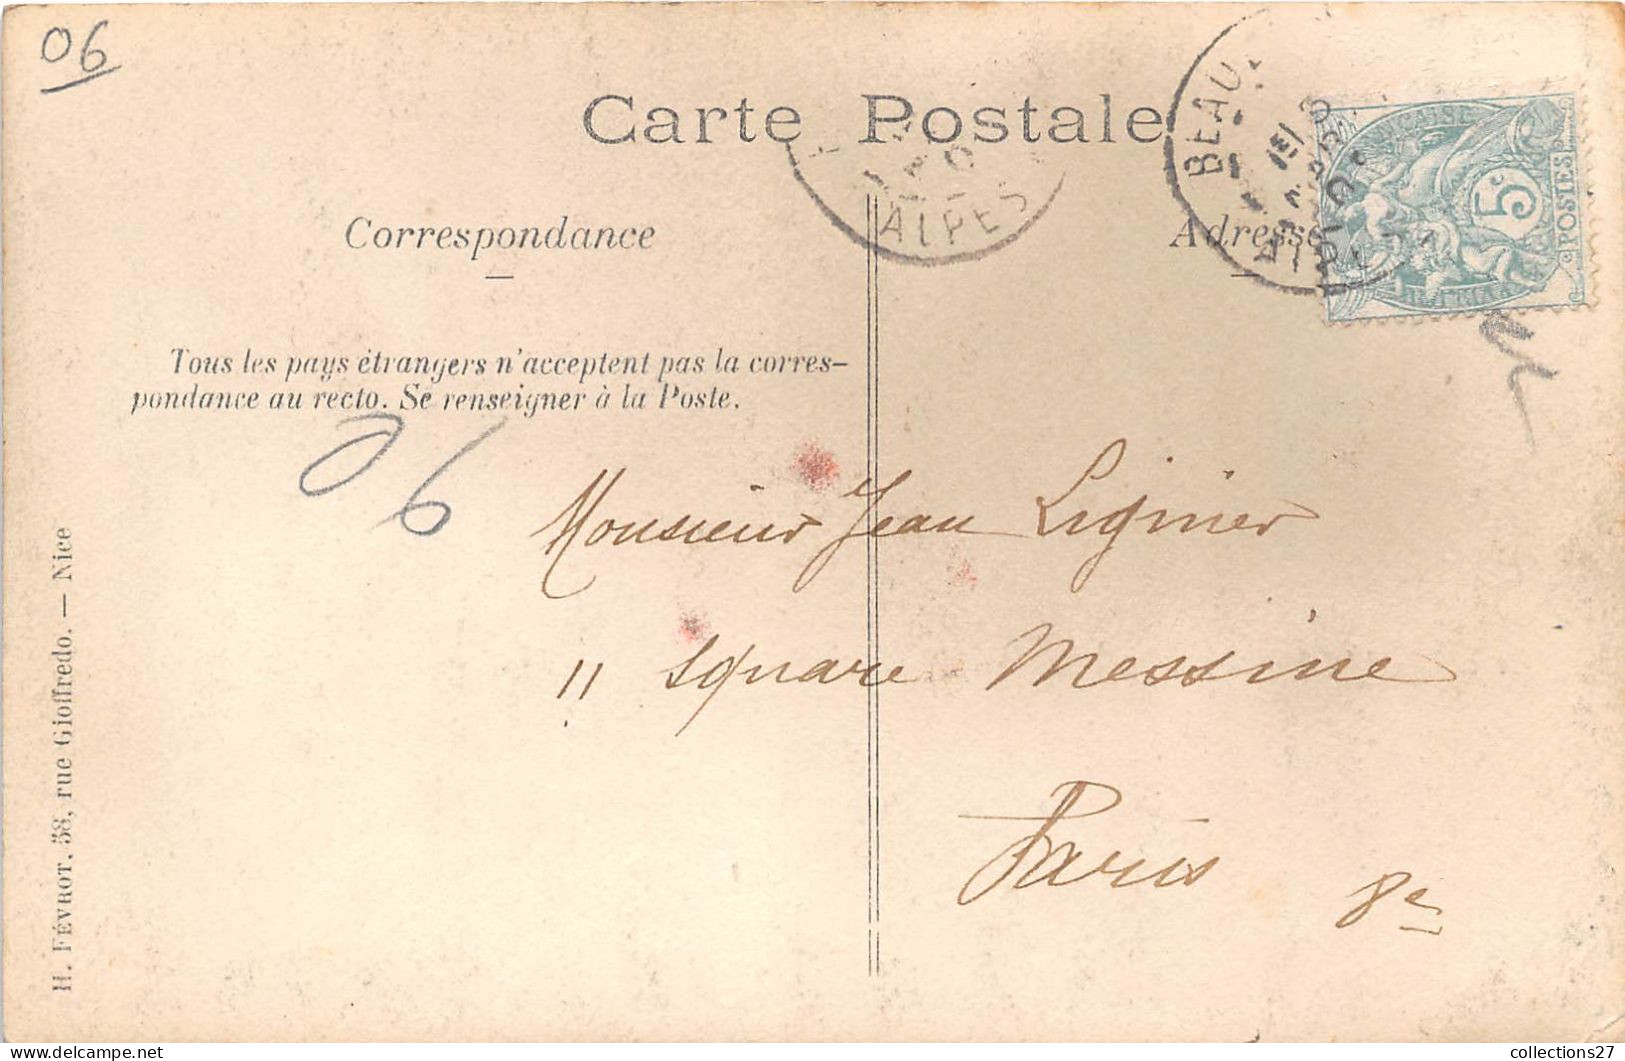 06
Carte Postale
BEAU
ALPES
Correspondance
Adresse
5c
POSTES
Tous les pays étrangers n'acceptent pas la corres-
pondance au recto. Se renseigner à la Poste.
06
Monsieur Jean Liginier
11 square Messine
Paris 8e
H. FÉVROT, 58, rue Gioffredo. — Nice
collections27